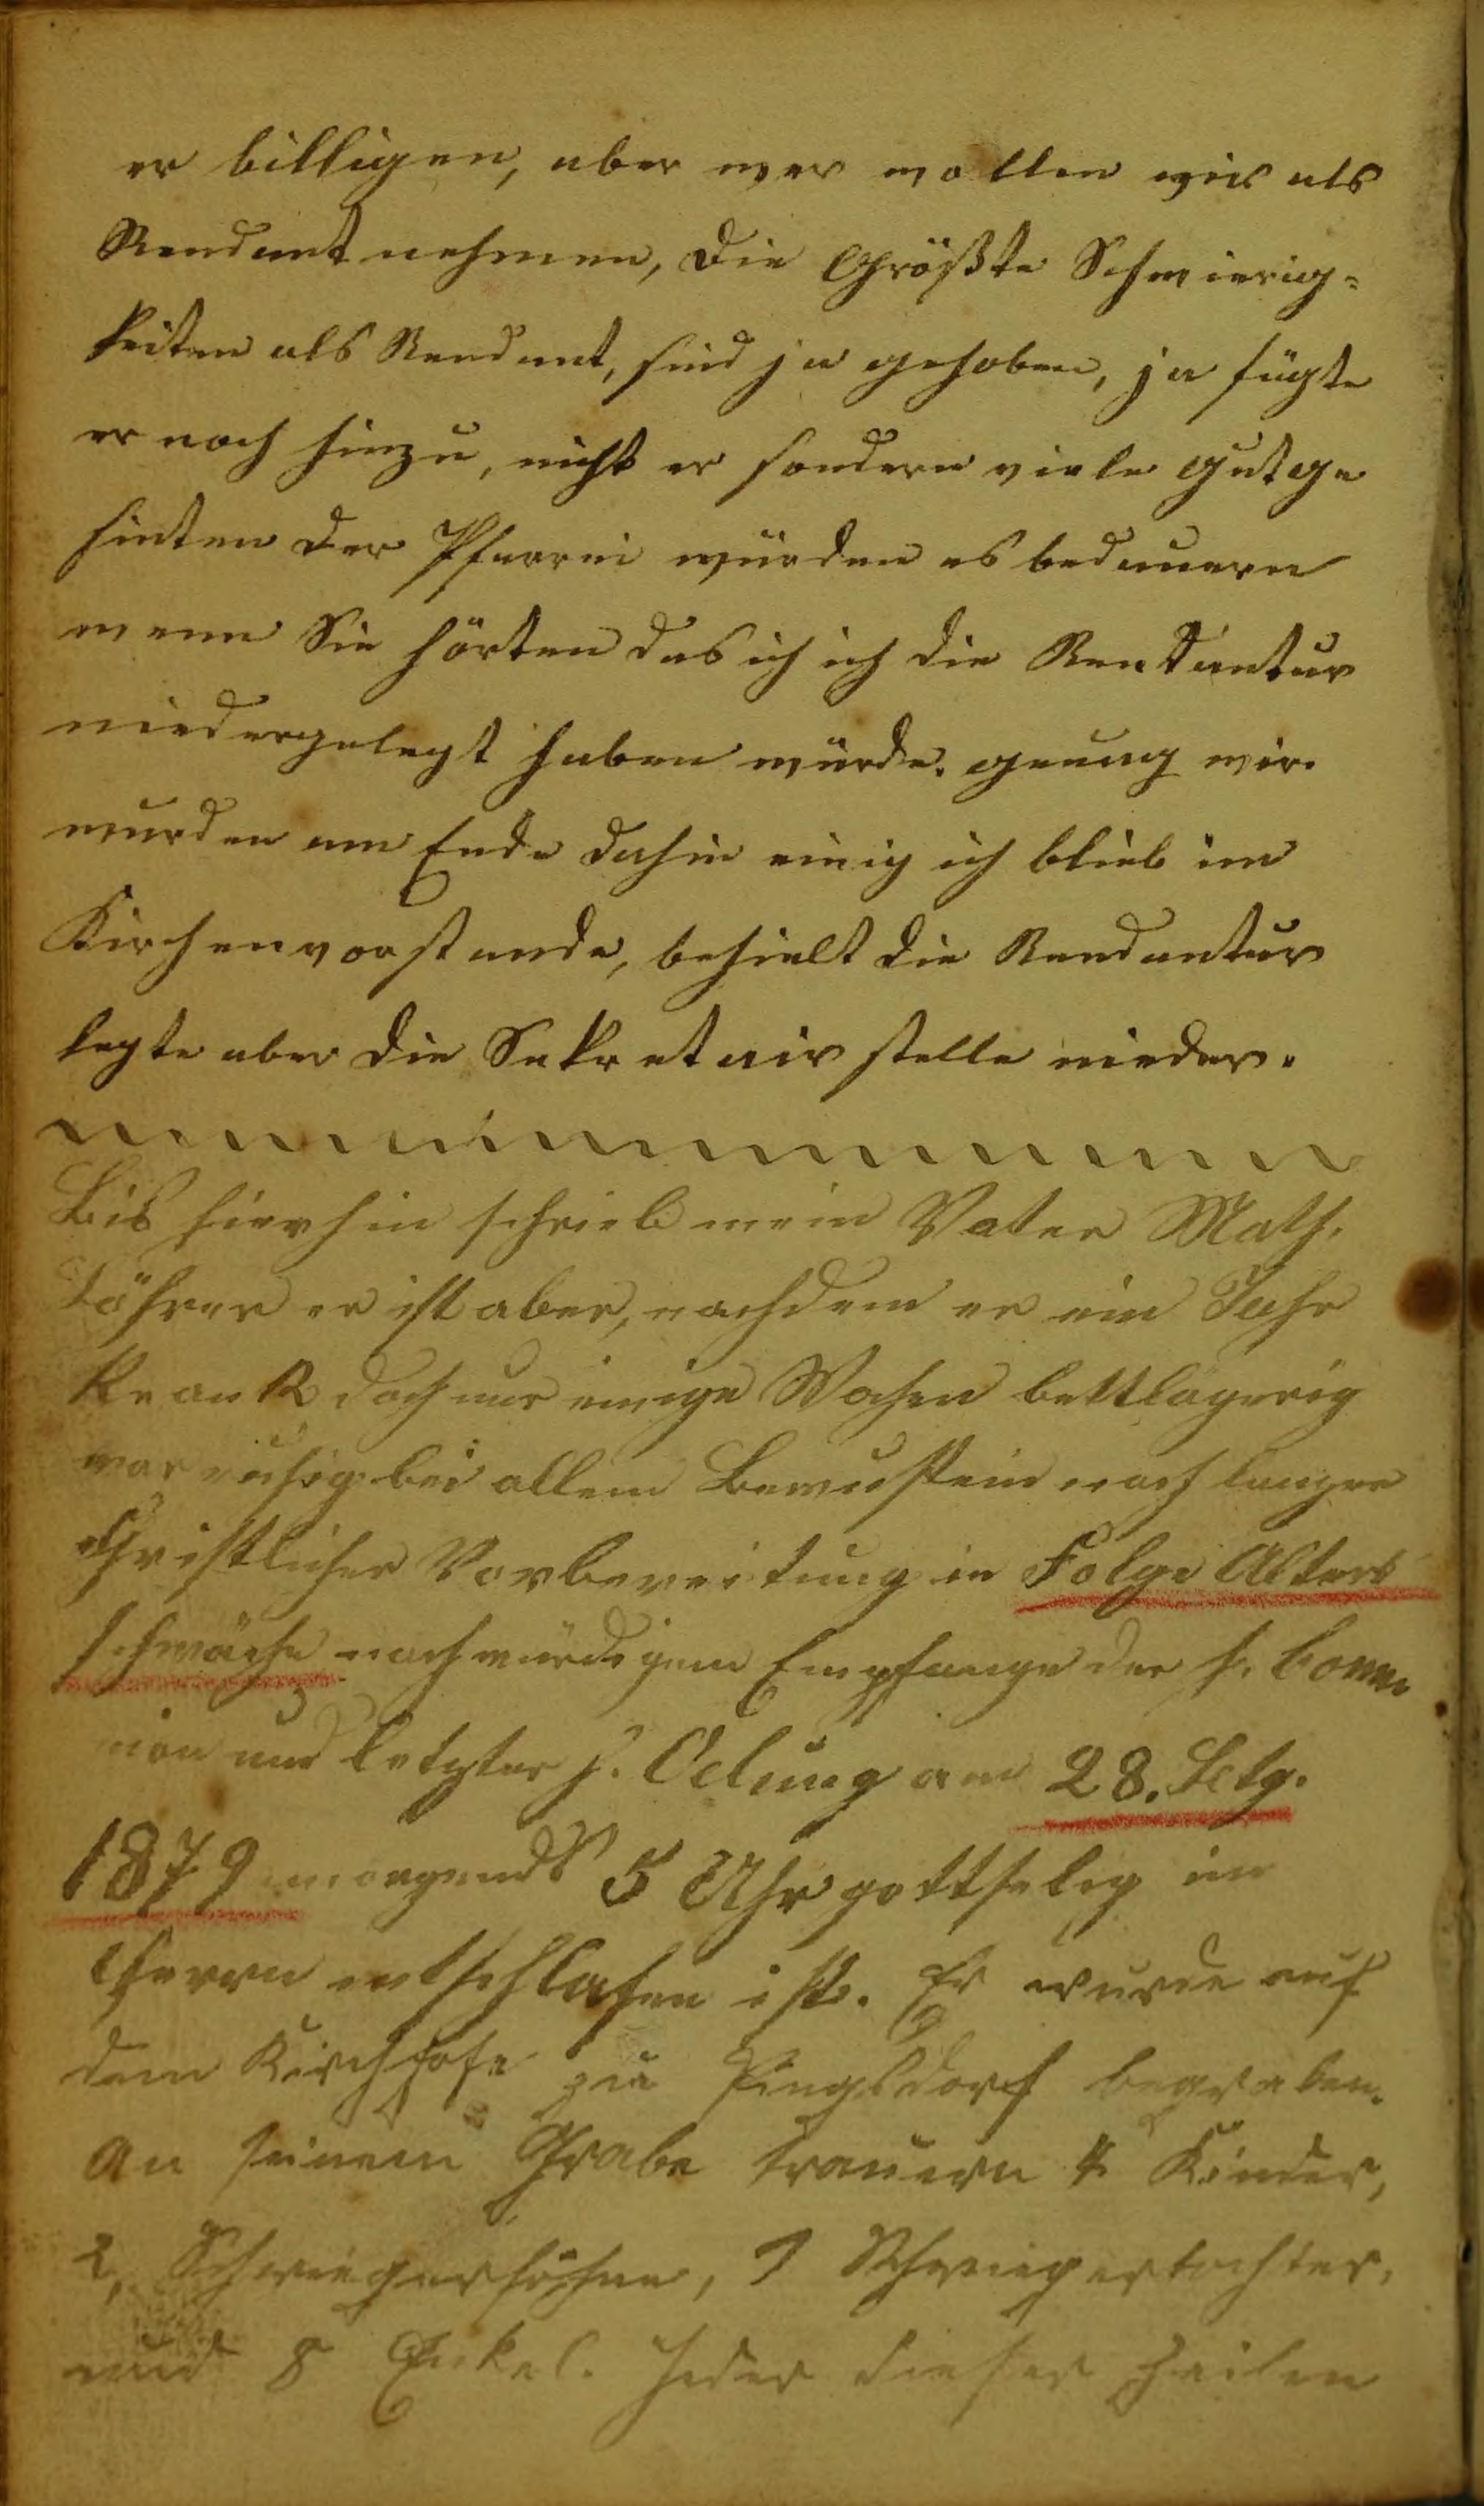 er billigen, aber wer wollen wir als
Rendant nehmen, die Größte Schwierig=
keiten als Rendant, sind ja gehoben, ja fügte
er noch hinzu, nicht er sondern viele gutge
sinten der Pfarrei würden es bedauern
wenn Sie hörten das ich ich die Rentantur
niedergelegt haben würde. genug wir
wurden am Ende dahin einig ich blieb im
Kirchenvorstande, behielt die Rendantur
legte aber die Sekretair stelle nieder.
Bis hierhin schrieb mein Vater Math.
er ist aber, nachdem er ein Jahr
krank doch nur einige Wochen bettlägerig
war ruhig bei allem Bewustsein nach langer
christlicher Vorbereitung in Folge Alters
schwäche nach würdigem Empfange der h. Comm
nion und letzter h. Oelung am 28.
1879 morgends 5 Uhr gottselig im
Herrn entschlafen ist. Er wurde auf
dem Kirchhofe zu Pingsdorf begraben.
An seinem Grabe trauern 4 Kinder,
2, Schwiegersöhne, 1 Schwiegertochter,
und 8 Enkel. Jeder dieser Zeilen